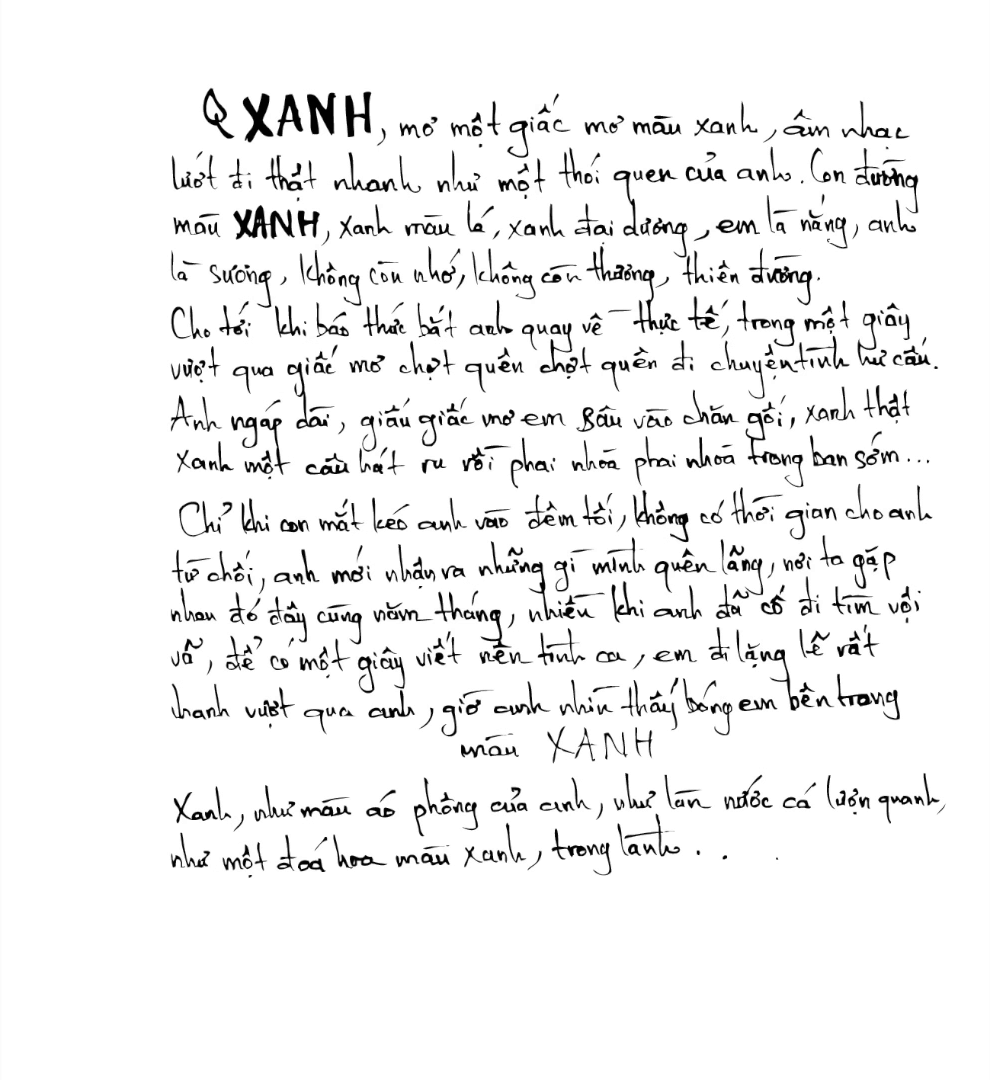 XANH, mơ một giấc mơ màu xanh, âm nhạc
lướt đi thật nhanh như một thói quen của anh. Con đường
màu XANH, xanh màu lá, xanh đại dương, em là nắng, anh
là sương, không còn nhớ, không còn thương, thiên đường.
Cho tới khi báo thức bắt anh quay về thực tế, trong một giây
vượt qua giấc mơ chợt quên chợt quên đi chuyện tình hư cấu.
Anh ngáp dài, giấu giấc mơ em sâu vào chăn gối, xanh thật
xanh một câu hát ru rồi phai nhoà phai nhoà trong ban sớm...
Chỉ khi con mắt kéo anh vào đêm tối, không có thời gian cho anh
từ chối, anh mới nhận ra những gì mình quên lãng, nơi ta gặp
nhau đó đây cùng năm tháng, nhiều khi anh đã cố đi tìm vội
vã, để có một giây viết nên tình ca, em đi lặng lẽ rất
nhanh vượt qua anh, giờ anh nhìn thấy bóng em bên trong
màu XANH
Xanh, như màu áo phông của anh, như làn nước cá lượn quanh,
như một đoá hoa màu xanh, trong lành...